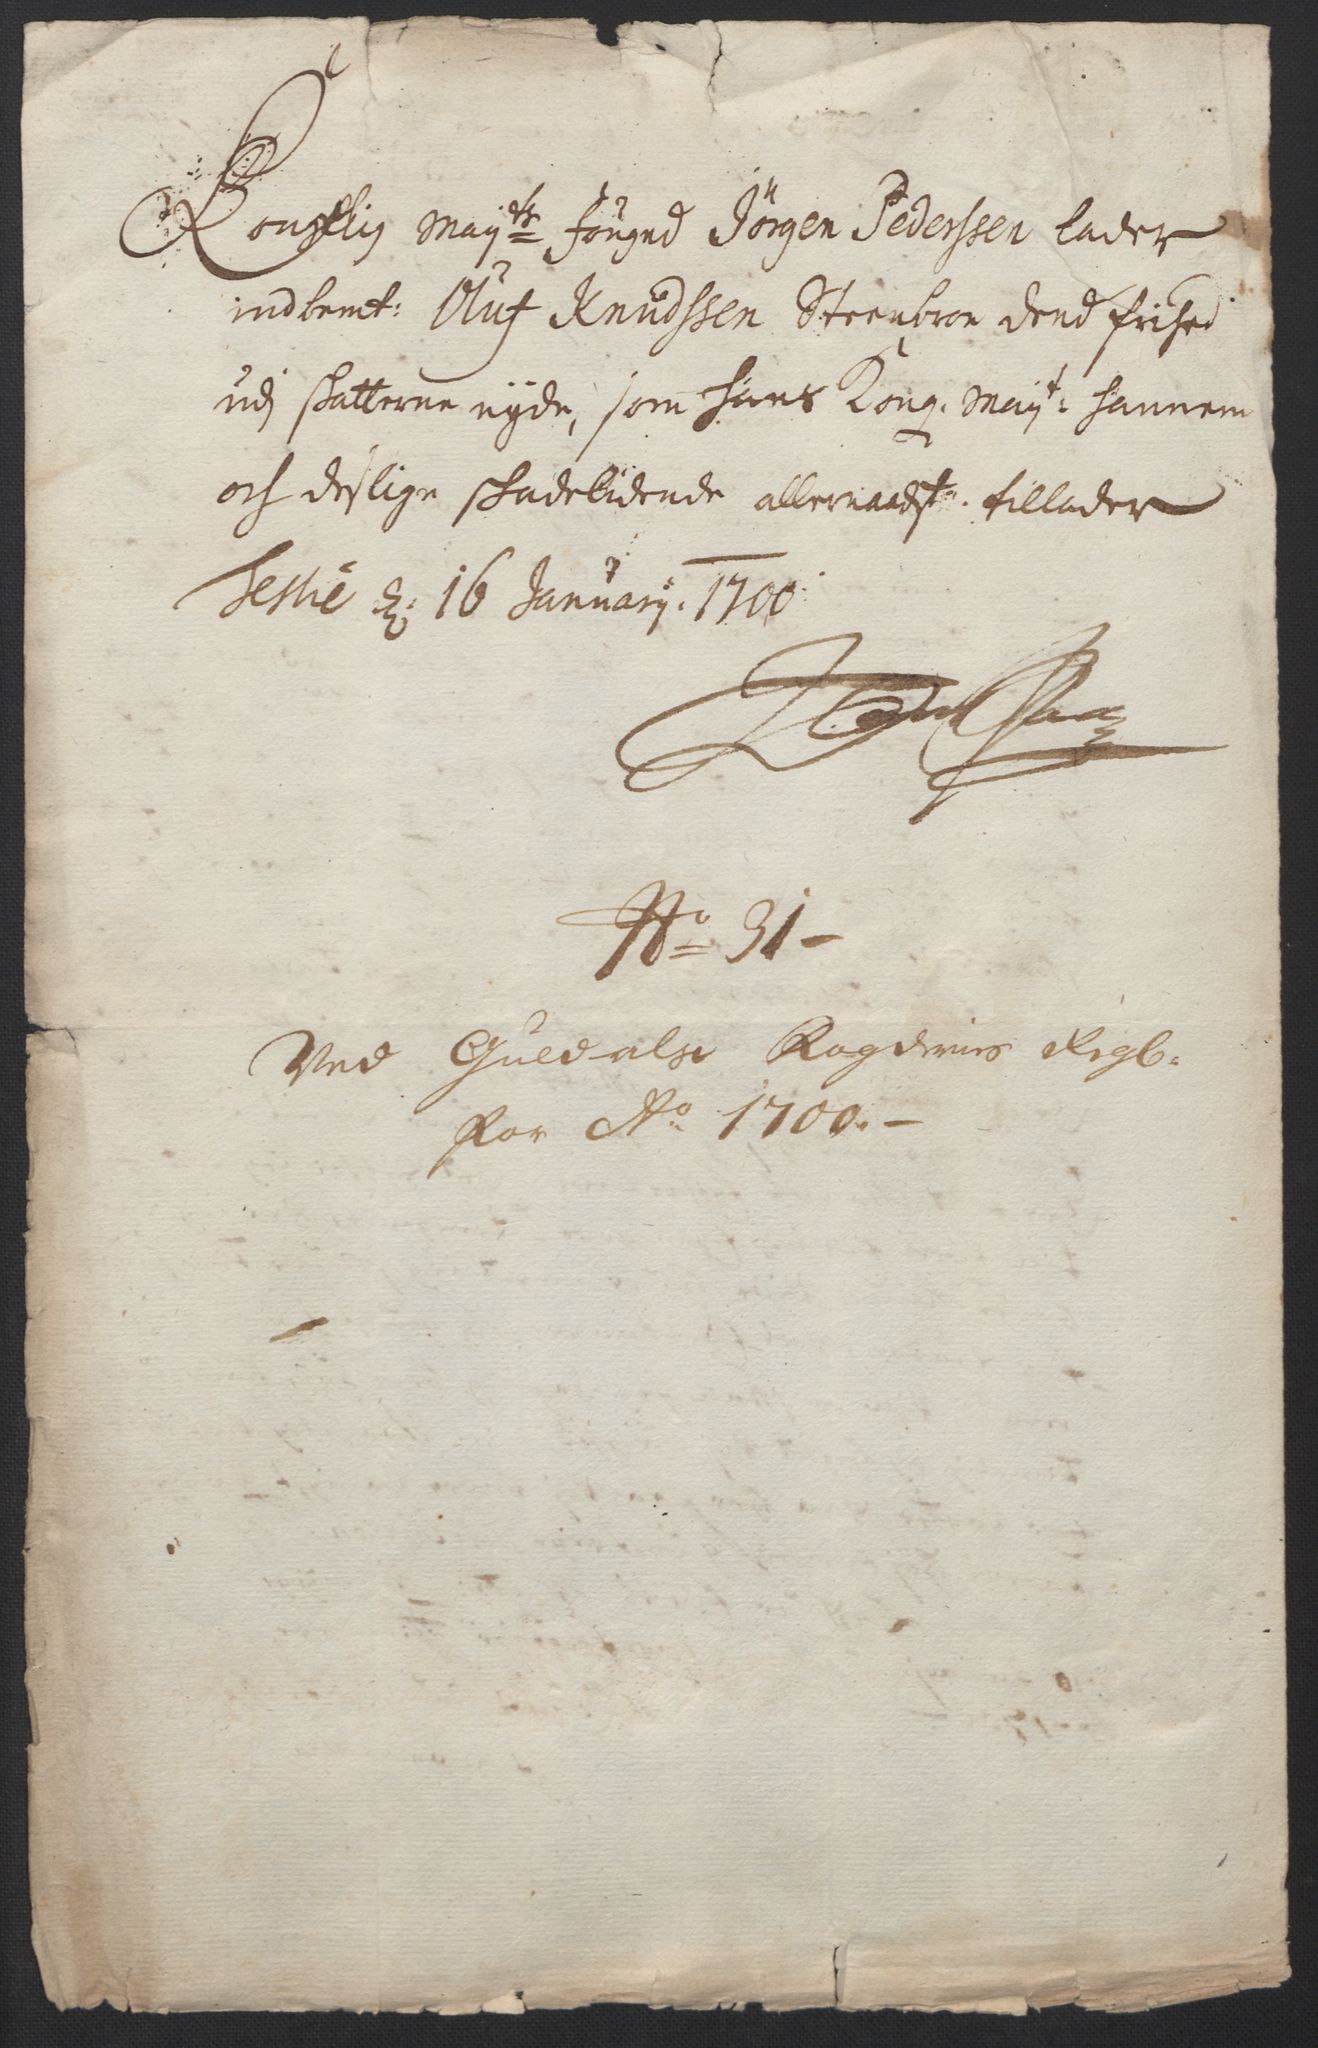 Kongelig Mayts: fougud Jörgen Pederssen lader
indbemt: Oluf Knudssen Steenbroe dend frihed
udj skatterne nyde, som hans Kong. Mayt: hannem
och deslige skadelidende allernaadst. tillader
Testie D: 16 January. 1700.
No 31-
Ved Guldalss Fogderies Regb:
for Ao 1700.-